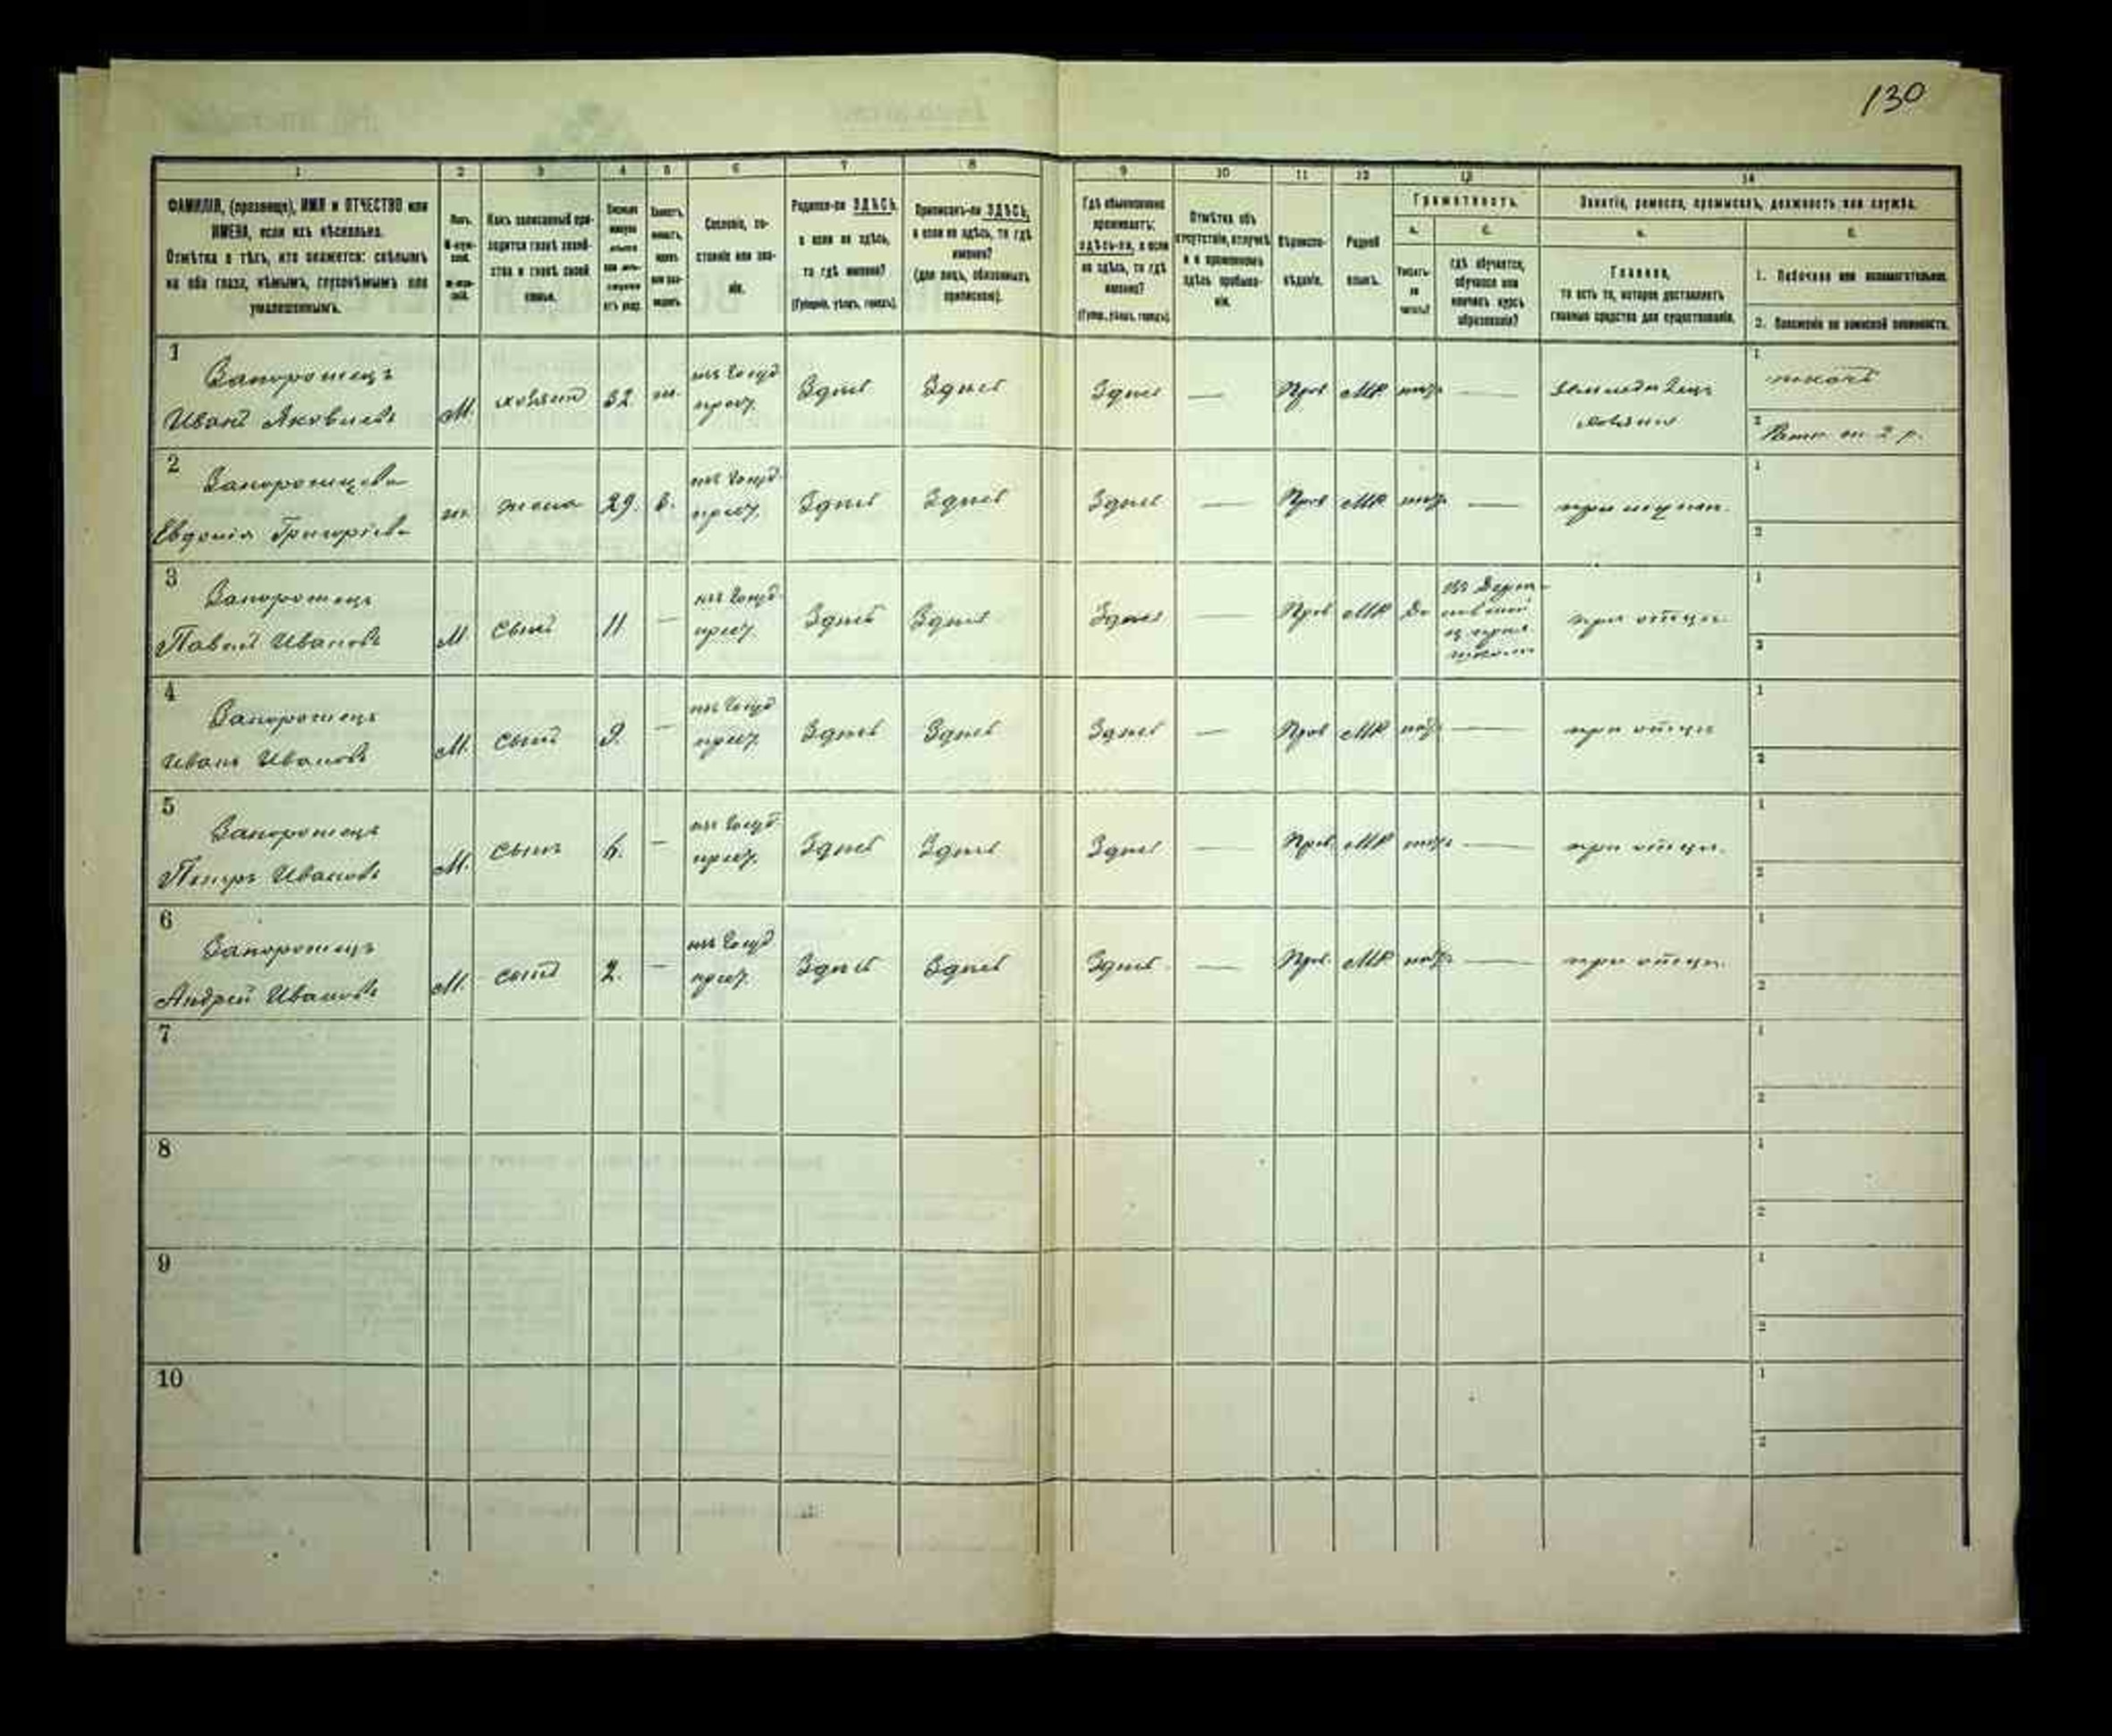 130
1
2
3
4
5
6
7
8
9
10
11
12
13
14
ФАМИЛІЯ, (прозвище), ИМЯ и ОТЧЕСТВО или
ИМЕНА, если ихъ нѣсколько.
Отмѣтка о тѣхъ, кто окажется: слѣпымъ
на оба глаза, нѣмымъ, глухонѣмымъ или
умалишеннымъ.
Полъ.
Какъ записанный при-
ходится главѣ хозяй-
ства и главѣ своей
семьи.
Сословіе, со-
стояніе или зва-
ніе.
Родился-ли ЗДѢСЬ,
а если не здѣсь,
то гдѣ именно?
(Губернія, уѣздъ, городъ).
Приписанъ-ли ЗДѢСЬ,
а если не здѣсь, то гдѣ
именно?
(для лицъ, обязанныхъ
припискою).
Гдѣ обыкновенно
проживаетъ:
здѣсь-ли, а если
не здѣсь, то гдѣ
именно?
(Губер., уѣздъ, городъ).
Отмѣтка объ
отсутствіи, отлучкѣ
и о временномъ
здѣсь пребыва-
ніи.
Вѣроиспо-
вѣданіе.
Родной
языкъ.
Грамотность.
а.
б.
Умѣетъ-
ли
читать?
гдѣ обучается,
обучался или
кончилъ курсъ
образованія?
Занятіе, ремесло, промыселъ, должность или служба.
а.
б.
Главное,
то есть то, которое доставляетъ
главныя средства для существованія.
1. Побочное или вспомогательное.
2. Положеніе по воинской повинности.
1
Запорожецъ
Иванъ Яковлевъ
М.
хозяинъ
32
ж.
изъ госуд.
крест.
Здѣсь
Здѣсь
Здѣсь
—
Прав
МР
—
1
ткачъ
2
2
Запорожцева
Евдокія Григоріева
ж.
жена
29.
з.
изъ госуд.
крест.
Здѣсь
Здѣсь
Здѣсь
—
Прав
МР
—
1
2
3
Запорожецъ
Павелъ Ивановъ
М
сынъ
11
—
изъ госуд.
крест.
Здѣсь
Здѣсь
Здѣсь
—
Прав
МР
Да
школѣ
при отцѣ
1
2
4
Запорожецъ
Иванъ Ивановъ
М.
сынъ
9.
—
изъ госуд
крест.
Здѣсь
Здѣсь
Здѣсь
—
Прав
МР
—
при отцѣ
1
2
5
Запорожецъ
Петръ Ивановъ
М.
сынъ
6.
—
изъ госуд
крест.
Здѣсь
Здѣсь
Здѣсь
—
Прав
МР
—
при отцѣ
1
2
6
Запорожецъ
Андрей Ивановъ
М.
сынъ
2.
—
изъ госуд
крест.
Здѣсь
Здѣсь
Здѣсь
—
Прав.
МР
—
при отцѣ
1
2
7
1
2
8
1
2
9
1
2
10
1
2